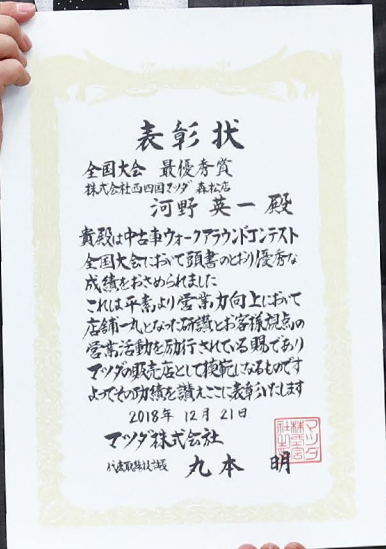 表彰状
全国大会 最優秀賞
株式会社西四国マツダ 森松店
河野 英一 殿
貴殿は中古車ウォークアラウンドコンテスト
全国大会において頭書のとおり優秀な
成績をおさめられました
これは平素より営業力向上において
店舗一丸となった研鑽とお客様視点の
営業活動を励行されている賜であり
マツダの販売店として模範になるものです
よってその功績を讃えここに表彰いたします
2018年 12月 21日
マツダ株式会社
代表取締役会長 丸本 明